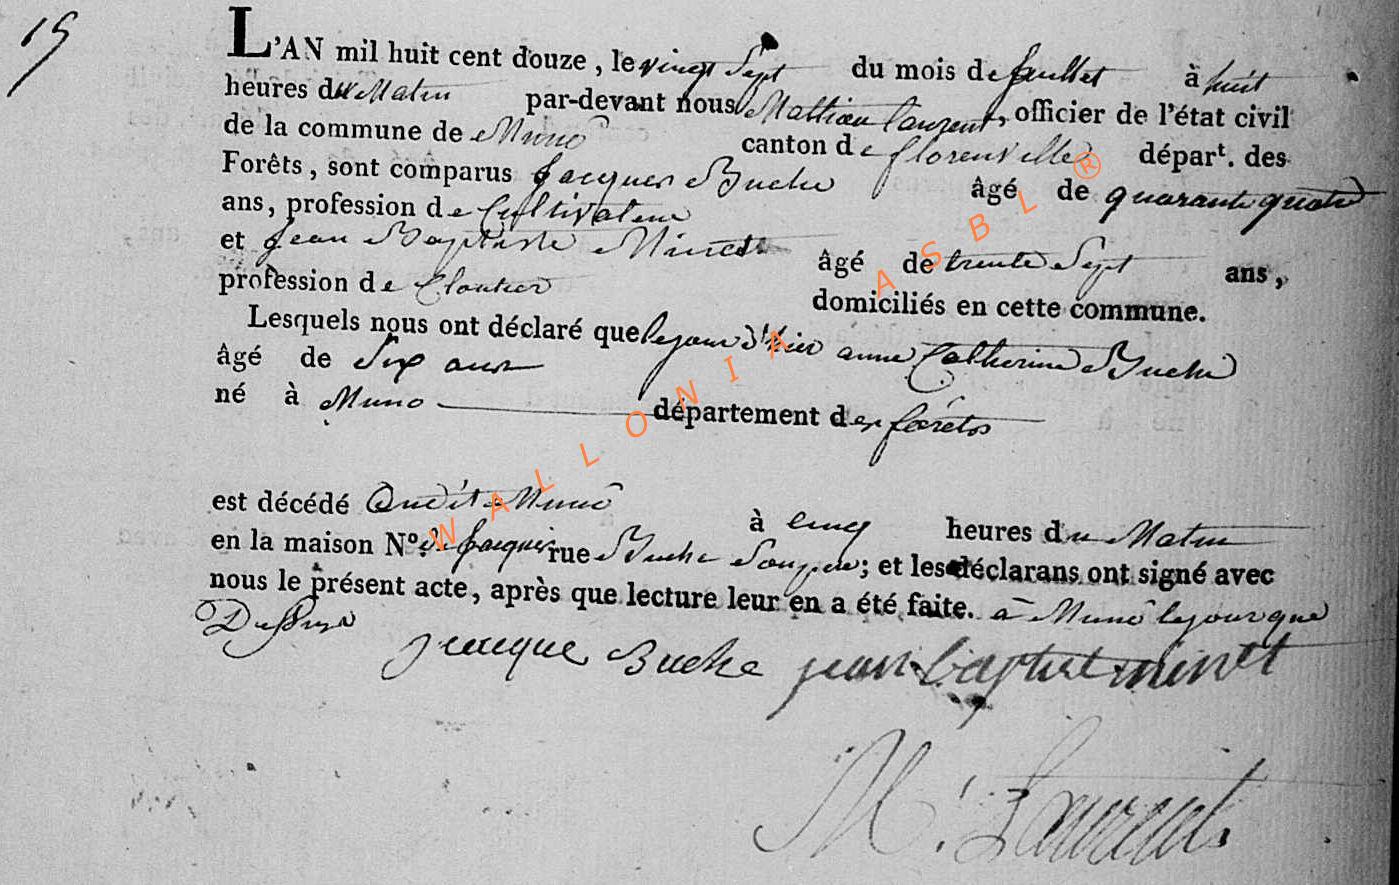 15
L'AN mil huit cent douze, le vingt Sept du mois de juillet à huit
heures du Matin par-devant nous Mathieu Laurent, officier de l'état civil
de la commune de Muno canton de florenville départ. des
Forêts, sont comparus Jacques Buche âgé de quarante quatre
ans, profession de Cultivateur
et Jean Baptiste Minet âgé de trente Sept ans,
profession de Cloutier domiciliés en cette commune.
Lesquels nous ont déclaré que le jour d'hier anne Catherine Buche
âgé de Six ans
né à Muno département des forêts
est décédé Audit Muno à cinq heures du Matin
en la maison N°. de Jacques rue Buche Son pere; et les déclarans ont signé avec
nous le présent acte, après que lecture leur en a été faite. à Muno le jour que
Dessus
jacque Buche jean baptiste minet
M. Laurent
WALLONIA ASBL ®